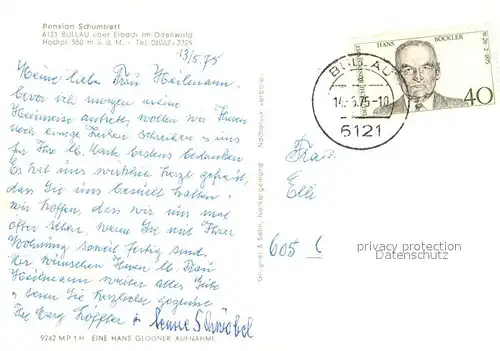 Pension Schumbert
6121 BULLAU über Erbach im Odenwald
Hochpl. 550 m ü. d. M. - Tel. 06062/2325
13/5.75
Meine liebe Frau Heilmann,
Bevor ich morgen meine
Heimreise antrete, wollen wir Ihnen
noch einige Zeilen schreiben u. uns
für Ihre lb. Karte bestens bedanken
Es hat uns wirklich herzl. gefreut,
dass Sie uns besucht hatten.
wir hoffen, dass wir uns mal
öfter sehen, wenn Sie mit Ihrer
Wohnung soweit fertig sind.
Wir wünschen Ihnen lb. Frau
Heilmann weiter alles Gute
u. seien Sie herzlichst gegrüsst
Ihre
9242 MP 1 H EINE HANS GLOGNER AUFNAHME
Glogner & Sohn, Neckargemünd Nachdruck verboten
DEUTSCHE BUNDESPOST
HANS BÖCKLER
40
BULLAU
14.-5.75-10
6121
Frau
Elli
605
privacy protection
Datenschutz